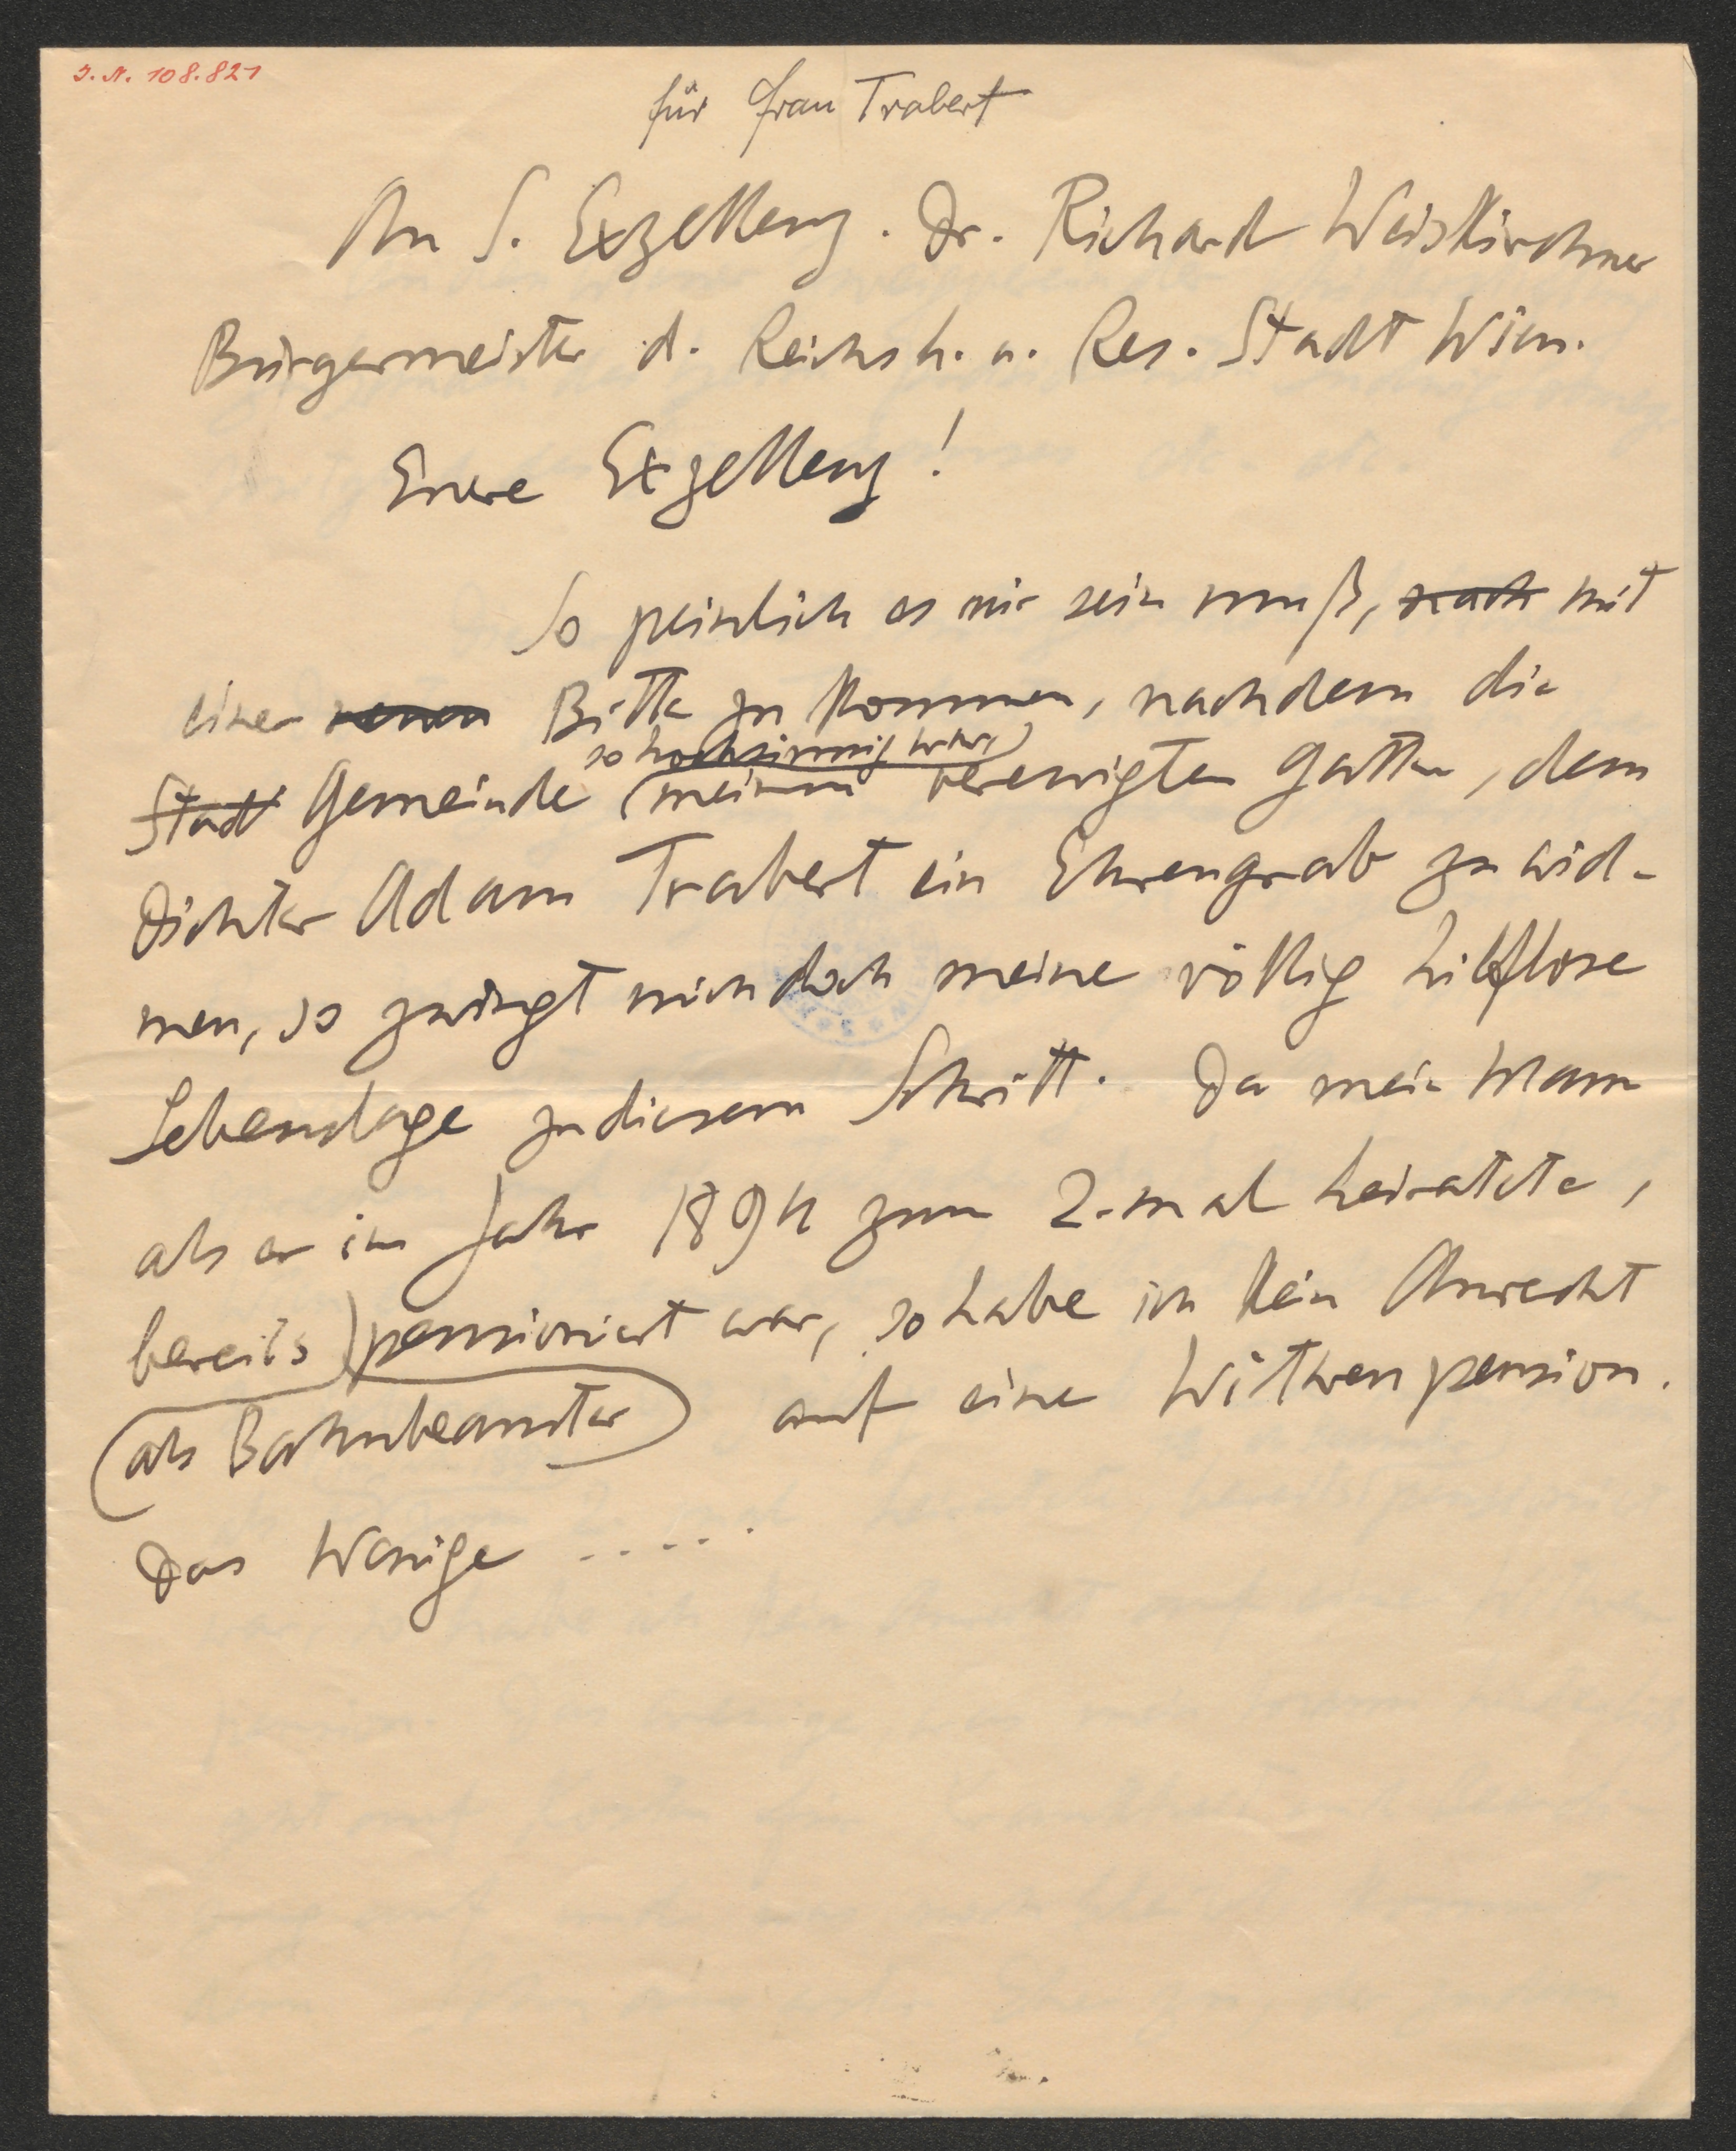 J. N. 108.821
für Frau Trabert
An S. Exzellenz. Dr. Richard Weiskirchner
Bürgermeister d. Reichsh. u. Res. Stadt Wien.
Euere Exzellenz!
So peinlich es mir sein muß, nach mit
einer neuen Bitte zu kommen, nachdem die
so hochsinnig war,
Stadt Gemeinde meinem verewigten Gatten, dem
Dichter Adam Trabert ein Ehrengrab zu wid-
men, so zwingt mich doch meine völlig hilflose
Lebenslage zu diesem Schritt. Da mein Mann
als er im Jahr 1894 zum 2. mal heiratete,
bereits pensioniert war, so habe ich kein Anrecht
als Bahnbeamter auf eine Witwenpension.
Das Wenige .....